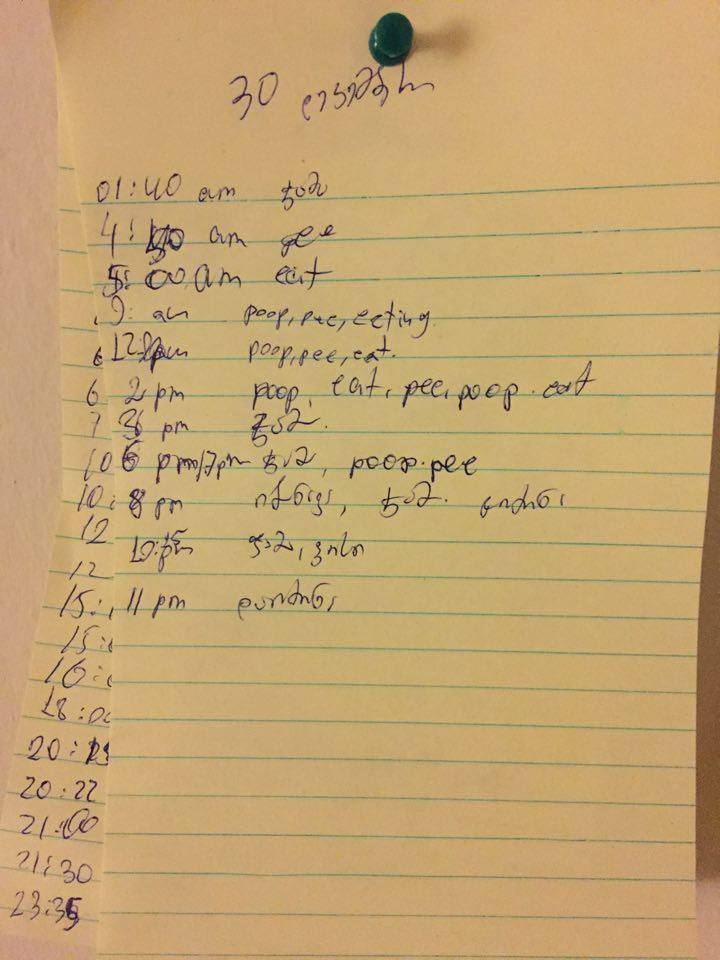 30 დეკემბერი
01:40 am ჭამა
4: am pee
5:00 am eat
9: am poop, pee, eeting
12 pm poop, pee, eat.
2 pm poop, eat, pee, poop. eat
3 pm ჭამა.
6 pm/7pm ჭამა, poop. pee
8 pm ჭამა.
10: ჭამა,
11 pm
6
6
7
10
10:
12
12
15:
15:
16:
18:00
20:
20:22
21:00
21:30
23:35